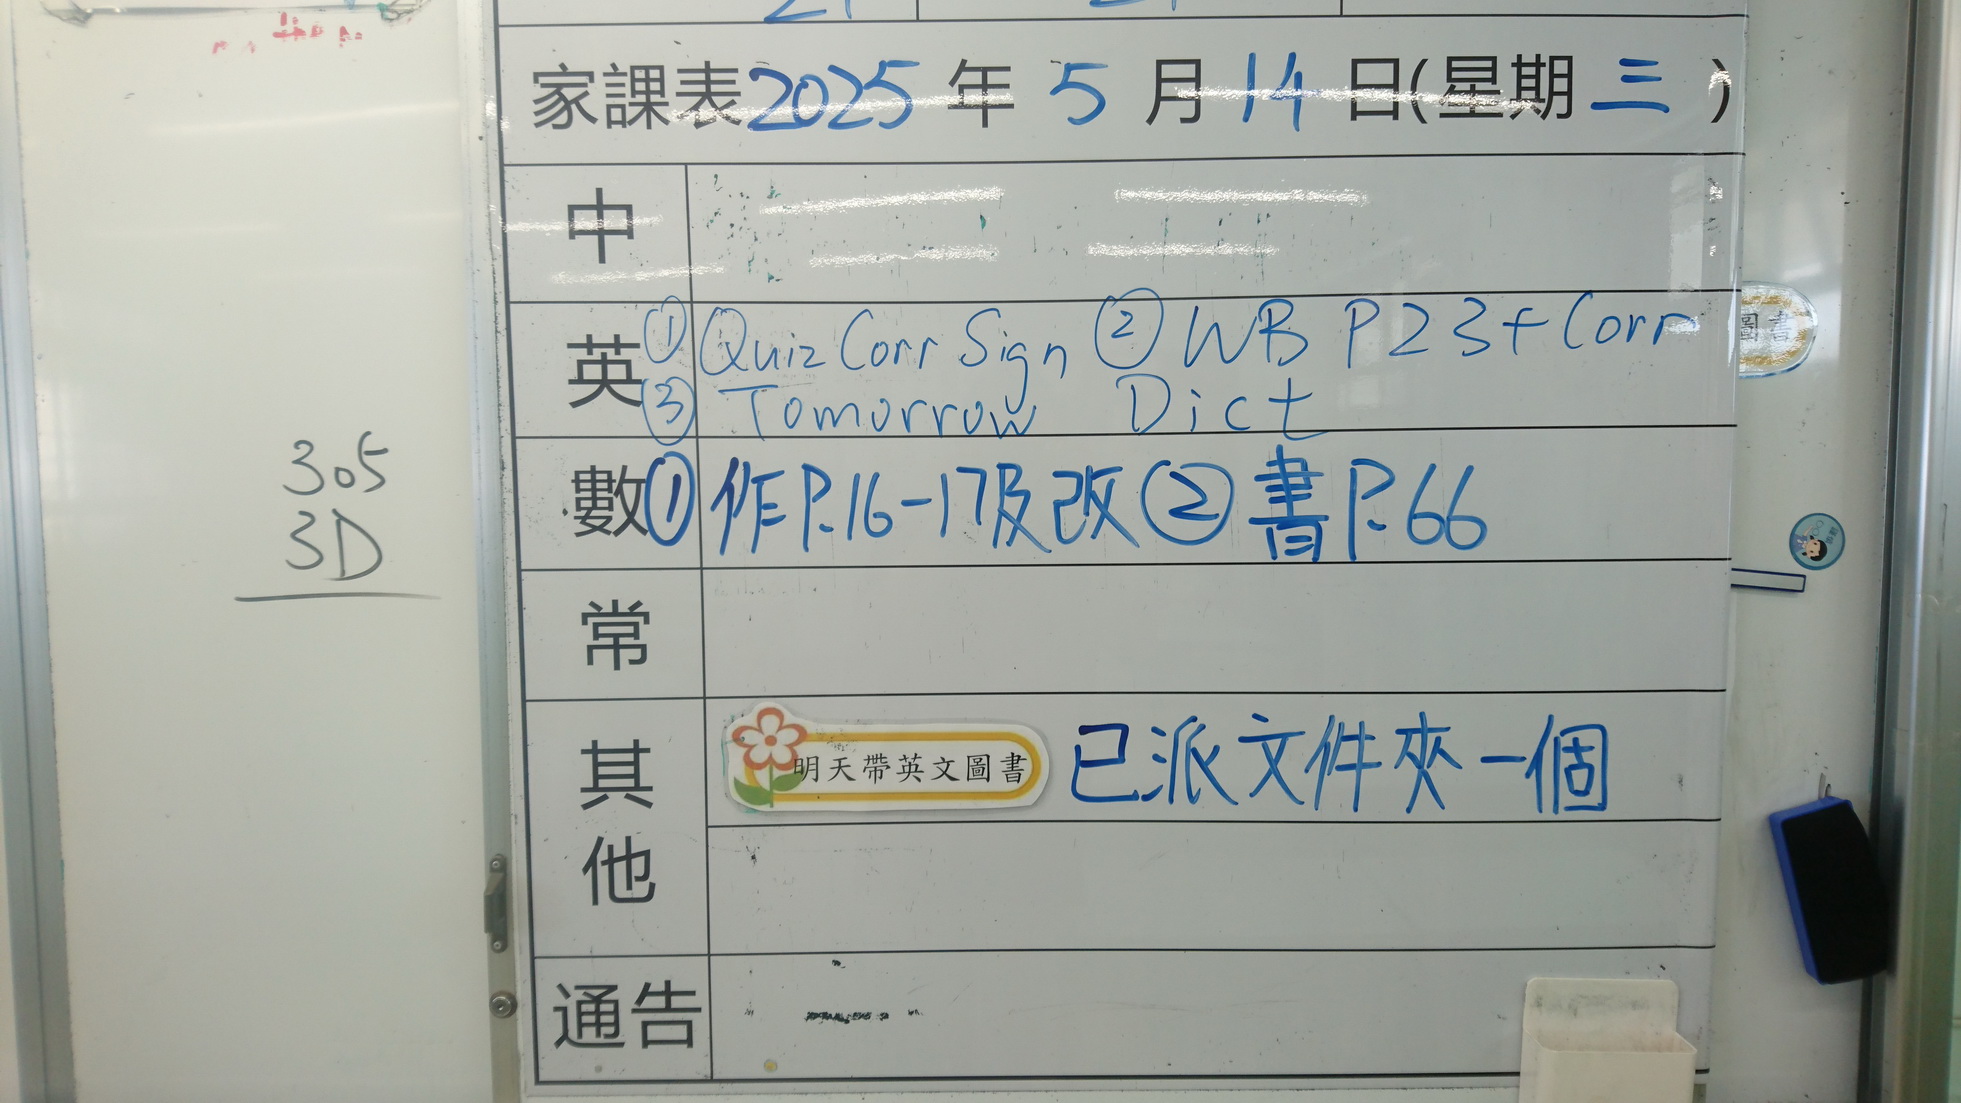 家課表2025年5月14日(星期三)
中
英 ①Quiz Corr Sign ②WB P23+Corr
③Tomorrow Dict
數 ①作P.16-17及改②書P.66
常
其他
明天帶英文圖書 已派文件夾一個
通告
305
3D
圖書